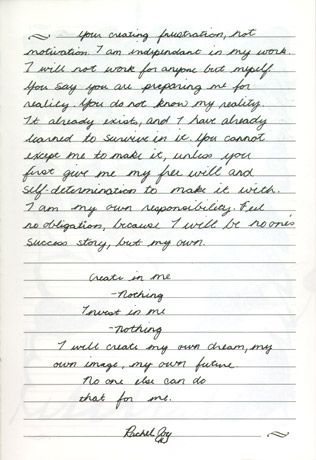 Your creating frustration, not
motivation. I am independant in my work.
I will not work for anyone but myself.
You say you are preparing me for
reality. You do not know my reality.
It already exists, and I have already
learned to survive in it. You cannot
except me to make it, unless you
first give me my free will and
self-determination to make it with.
I am my own responsibility. Feel
no obligation, because I will be no one's
success story, but my own.
Create in me
-Nothing
Invest in me
-Nothing
I will create my own dream, my
own image, my own future.
No one else can do
that for me.
Rachel Joy